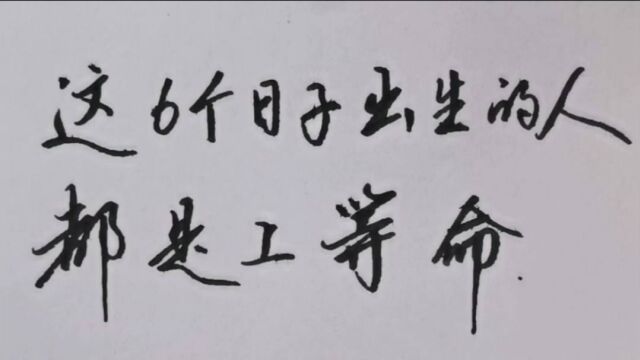 这6个日子出生的人
都是上等命